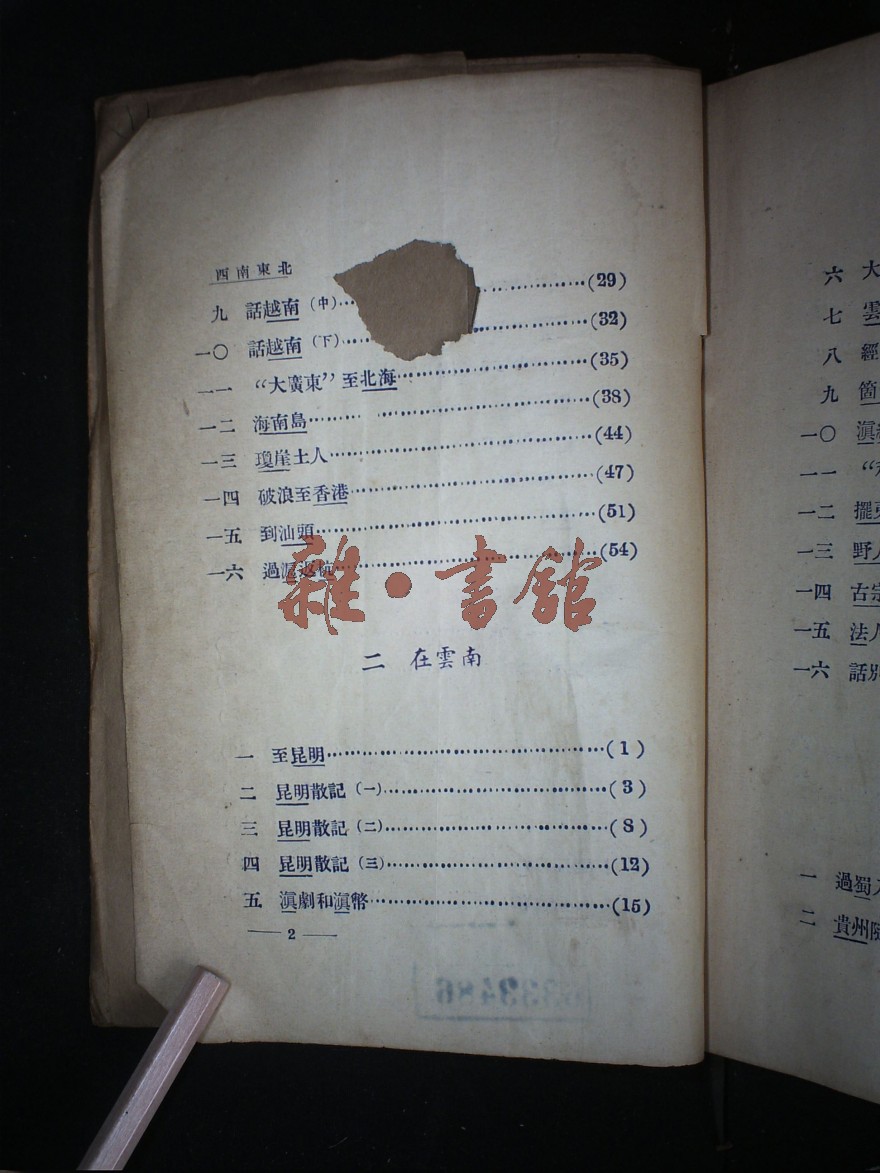 西南東北
九 話越南（中）……(29)
一〇 話越南（下）……(32)
一一 “大廣東”至北海……(35)
一二 海南島……(38)
一三 瓊崖土人……(44)
一四 破浪至香港……(47)
一五 到汕頭……(51)
一六 過滬返杭……(54)
雜·書館
二 在雲南
一 至昆明……(1)
二 昆明散記（一）……(3)
三 昆明散記（二）……(8)
四 昆明散記（三）……(12)
五 滇劇和滇幣……(15)
— 2 —
六 大
七 雲
八 經
九 箇
一〇 滇
一一
一二 擺
一三 野人
一四 古宗
一五 法人
一六 話別
一 過蜀
二 貴州